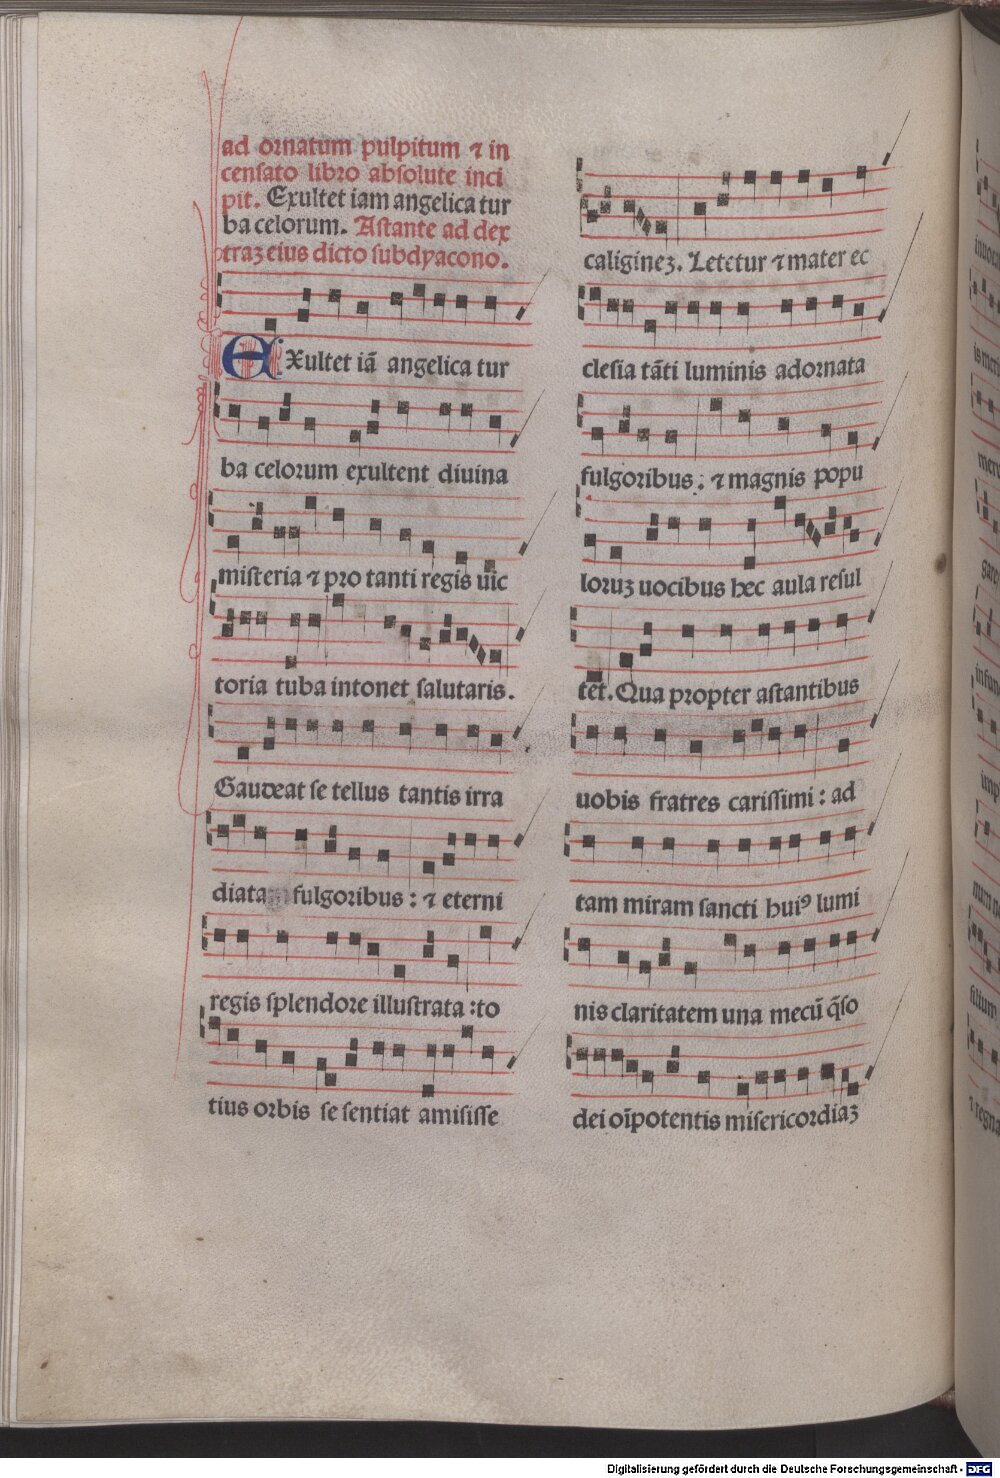 ad ornatum pulpitum ⁊ in
censato libro absolute inci
pit. Exultet iam angelica tur
ba celorum. Astante ad dex
traꝫ eius dicto subdyacono.
EXultet iā angelica tur
ba celorum exultent diuina
misteria ⁊ pro tanti regis uic
toria tuba intonet salutaris.
Gaudeat se tellus tantis irra
diata fulgoribus : ⁊ eterni
regis splendore illustrata : to
tius orbis se sentiat amisisse
caligineꝫ. Letetur ⁊ mater ec
clesia tāti luminis adornata
fulgoribus : ⁊ magnis popu
loruꝫ uocibus hec aula resul
tet. Qua propter astantibus
uobis fratres carissimi : ad
tam miram sancti huiꝰ lumi
nis claritatem una mecū q̄so
dei oīpotentis misericordiaꝫ
Digitalisierung gefördert durch die Deutsche Forschungsgemeinschaft - DFG